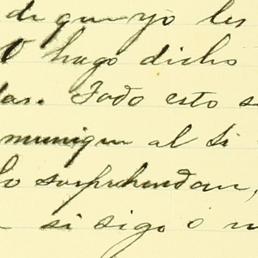 de que yo les
O hago dicho
das. Todo esto s
munique al Si
lo sosprehendan,
si sigo o n